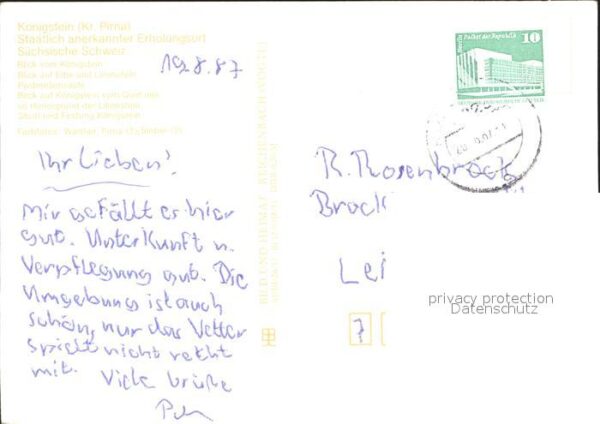 Königstein (Kr. Pirna)
Staatlich anerkannter Erholungsort
Sächsische Schweiz
Blick vom Königstein
Blick auf Elbe und Lilienstein
Blick auf Königstein vom Quirl aus
im Hintergrund der Lilienstein
Stadt und Festung Königstein
19.8.87
Ihr Lieben!
Mir gefällt es hier
gut. Unterkunft u.
Verpflegung gut. Die
Umgebung ist auch
schön, nur das Wetter
spielt nicht recht
mit. Viele Grüße
BILD UND HEIMAT REICHENBACH (VOGTL)
10
Berlin Palast der Republik
R. Rosenbrock
Brock
Lei
7
privacy protection
Datenschutz